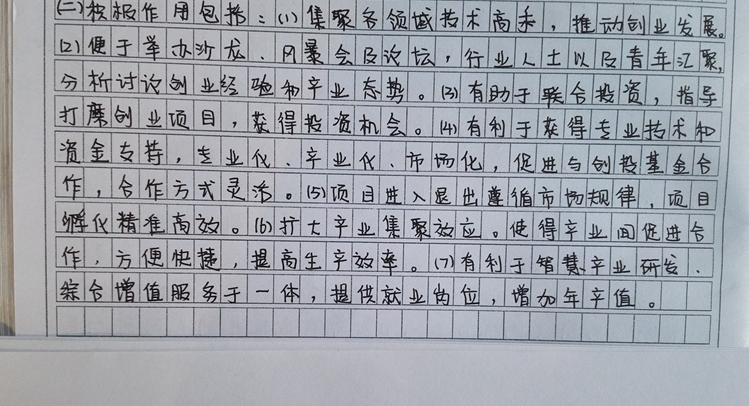 (二)积极作用包括：(1)集聚各领域技术高手，推动创业发展。
(2)便于举办沙龙、风暴会及论坛，行业人士以及青年汇聚，
分析讨论创业经验和产业态势。(3)有助于联合投资，指导
打磨创业项目，获得投资机会。(4)有利于获得专业技术和
资金支持，专业化、产业化、市场化，促进与创投基金合
作，合作方式灵活。(5)项目进入退出遵循市场规律，项目
孵化精准高效。(6)扩大产业集聚效应。使得产业间促进合
作，方便快捷，提高生产效率。(7)有利于智慧产业研发、
综合增值服务于一体，提供就业岗位，增加年产值。